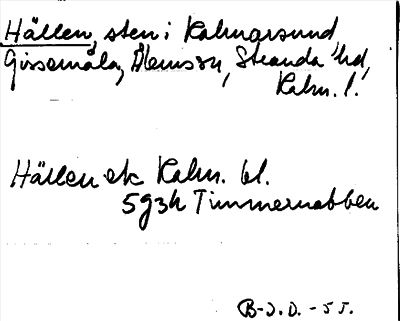 Hällen, sten i Kalmarsund,
Gissemåla, Ålemssn, Stranda hd,
Kalm. l.
Hällen ek Kalm. bl.
5g3h Timmernabben
B-J.D. - 55.